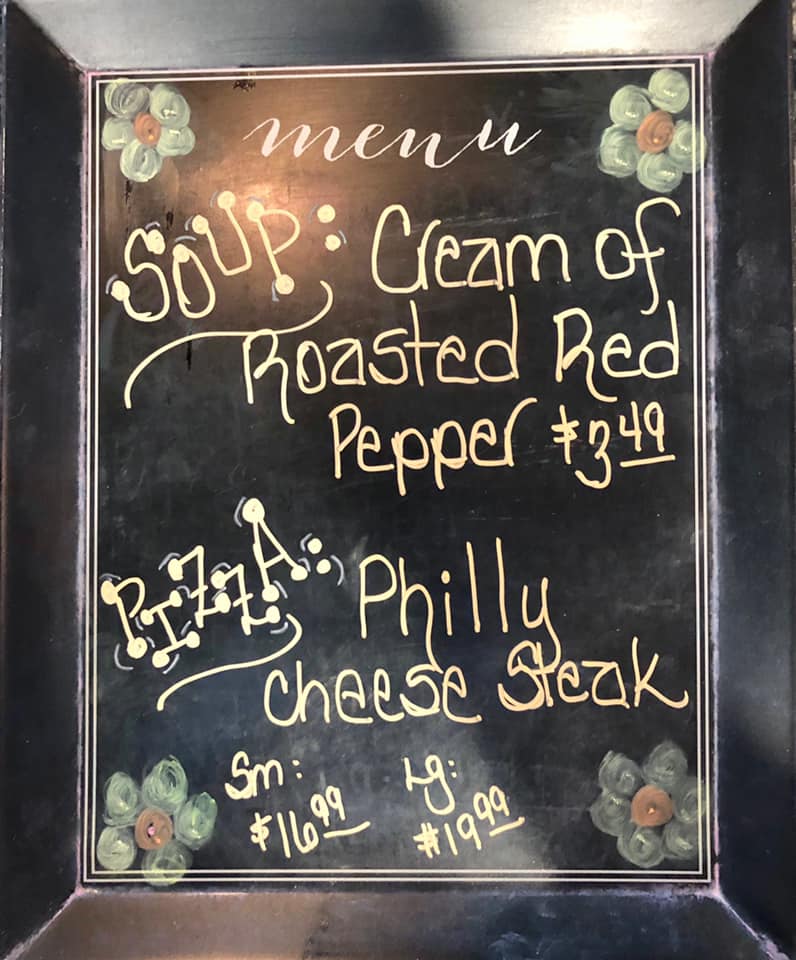 menu
SOUP: Cream of
Roasted Red
Pepper $3.49
PIZZA: Philly
cheese Steak
Sm: Lg:
$16.99 $19.99